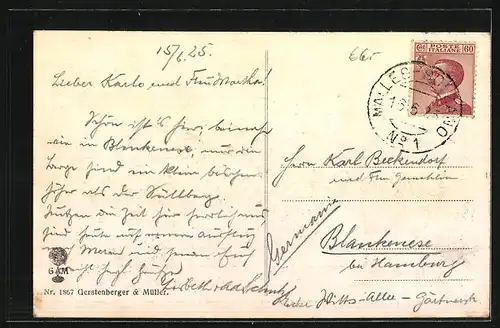 15/6.25.
665
Lieber Karlo und Frau Martha!
Schön ist's hier, beinahe
wie in Blankenese, nur die
Berge sind ein klein bischen
höher als der Süllberg.
Nutzen die Zeit hier
sind heute auf einem Ausflug
Meran und senden Euch
recht
GM
Nr. 1867 Gerstenberger & Müller.
60 POSTE ITALIANE 60
MALLES
No 1
Herrn Karl Beckendorf
und Frau Gemahlin
Germania
Blankenese
bei Hamburg
Witts-Allee - Gärtnerei